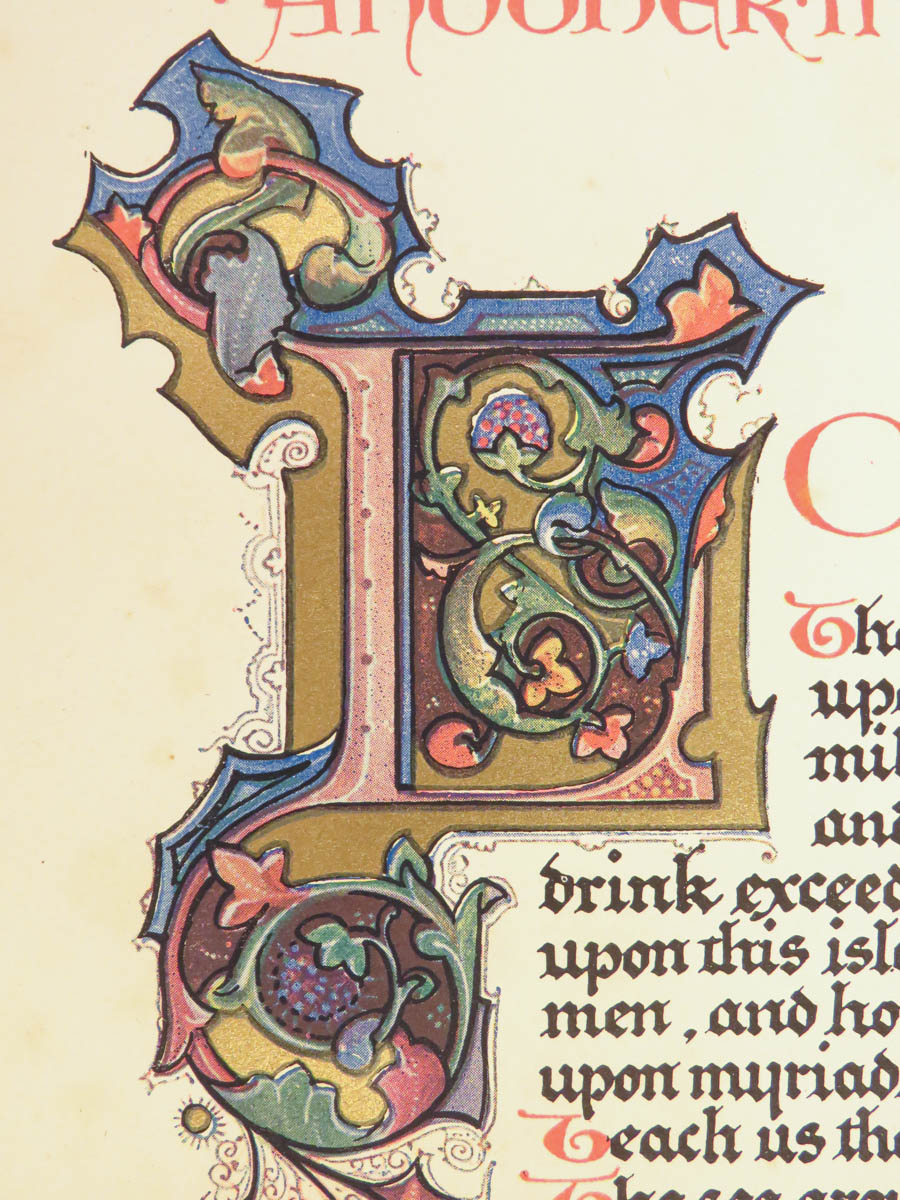 L
O
upo
mil
and
drink exceed
upon this isle
men, and ho
upon myriad
Teach us tha
The sea